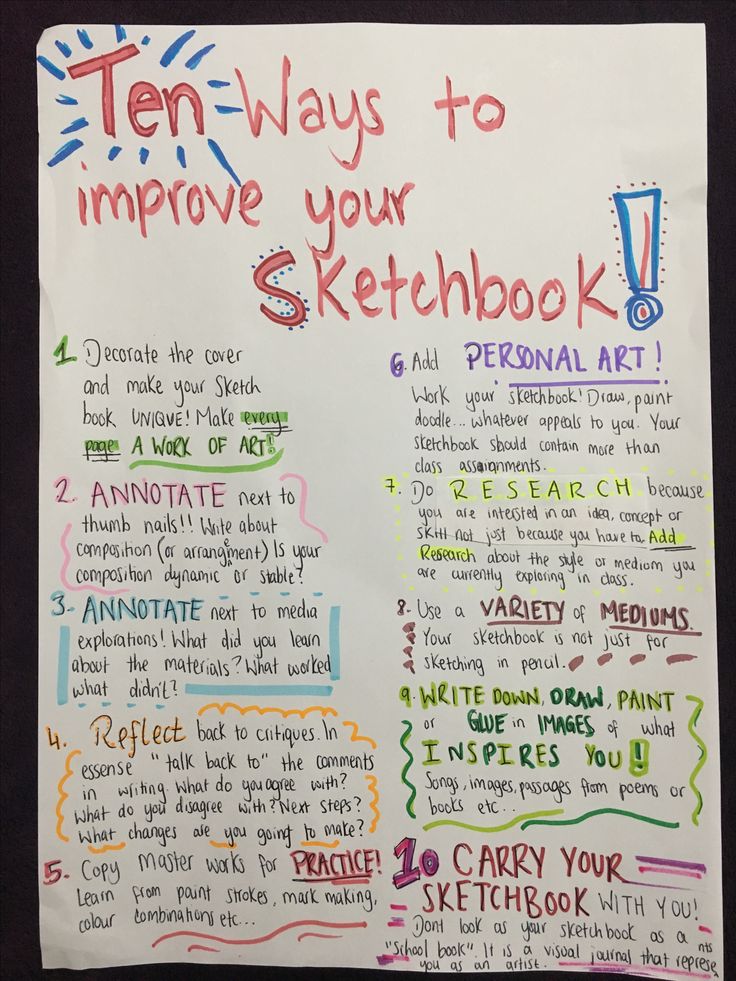 Ten Ways to
improve your
Sketchbook!
1 Decorate the cover
and make your Sketch
book UNIQUE! Make every
page A WORK OF ART!
2. ANNOTATE next to
thumb nails!! Write about
composition (or arrangement) Is your
composition dynamic or stable?
3. ANNOTATE next to media
explorations! What did you learn
about the materials? What worked
what didn't?
4. Reflect back to critiques. In
essense "talk back to" the comments
in writing. What do you agree with?
What do you disagree with? Next steps?
What changes are you going to make?
5. Copy Master works for PRACTICE!
Learn from paint strokes, mark making,
colour combinations etc...
6. Add PERSONAL ART!
Work your sketchbook! Draw, paint
doodle... whatever appeals to you. Your
sketchbook should contain more than
class assignments.
7. Do RESEARCH because
you are intersted in an idea, concept or
skill not just because you have to. Add
Research about the style or medium you
are currently exploring in class.
8. Use a VARIETY of MEDIUMS.
Your sketchbook is not just for
sketching in pencil.
9. WRITE DOWN, DRAW, PAINT
or GLUE in IMAGES of what
INSPIRES YOU!
Songs, images, passages from poems or
books etc...
10 CARRY YOUR
SKETCHBOOK WITH YOU!
Dont look as your sketchbook as a
"School book". It is a visual journal that represents
you as an artist.